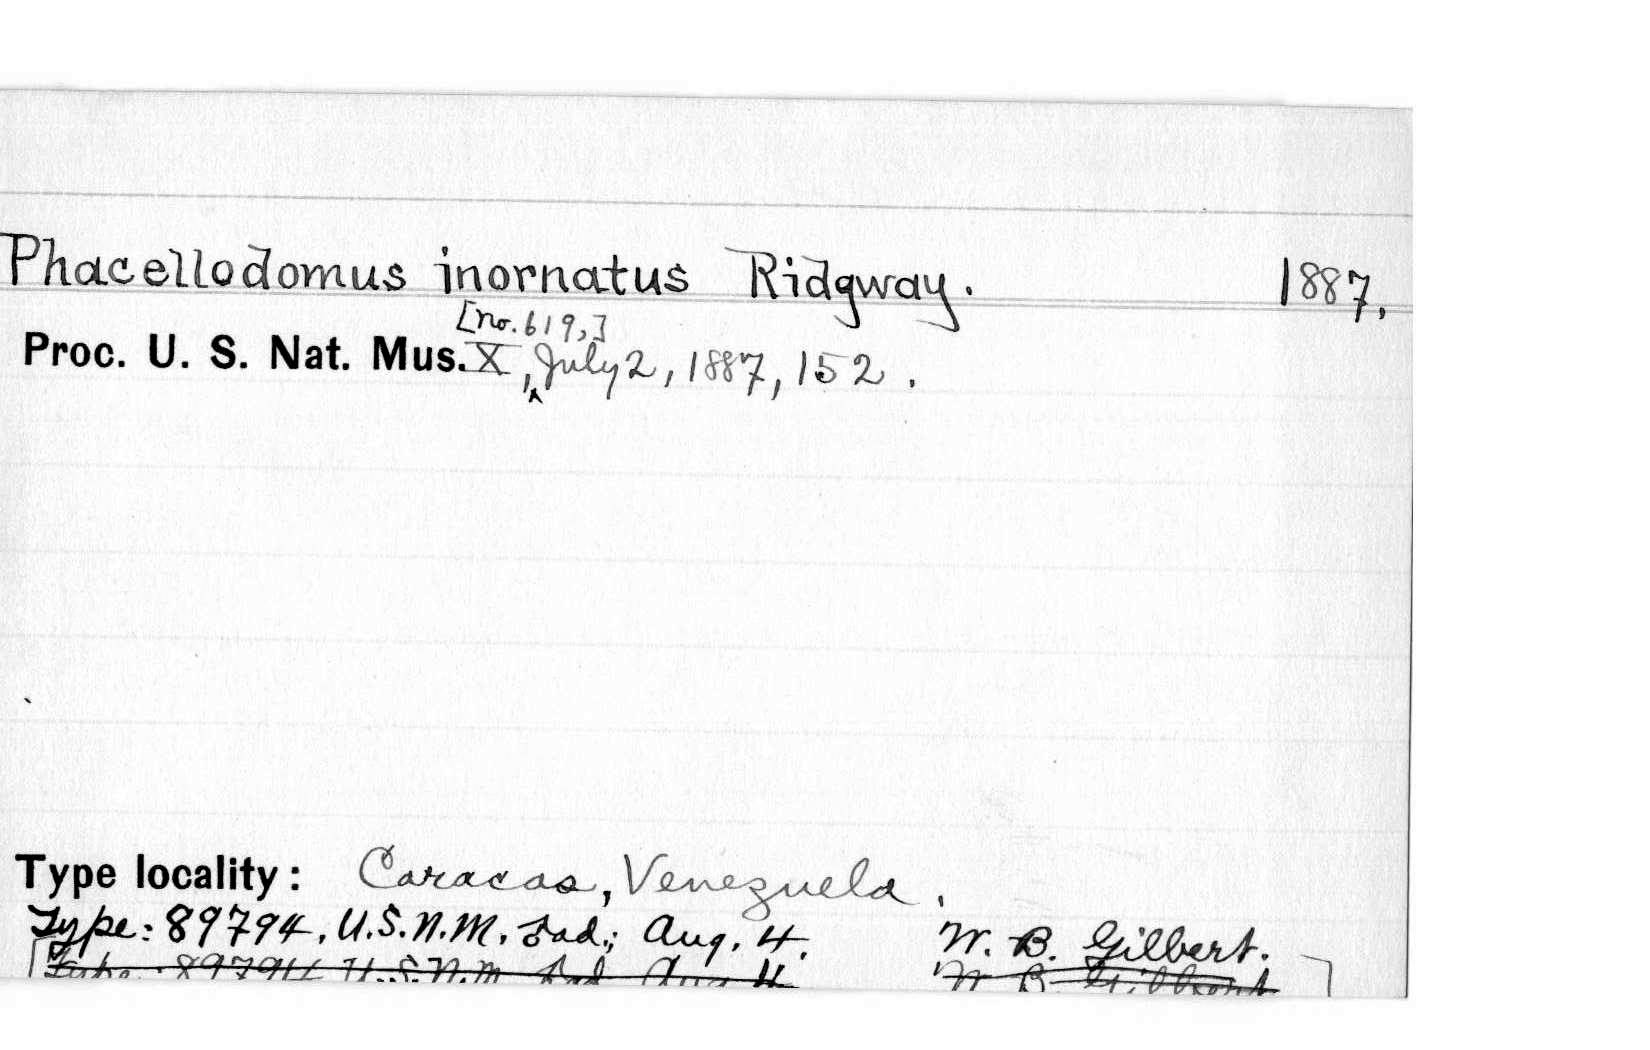 Phacellodomus inornatus Ridgway. 1887,
[no. 619,]
Proc. U. S. Nat. Mus. X, July 2, 1887, 152.
Type locality: Caracas, Venezuela.
Type: 89794, U.S.N.M. ♂ad.; Aug. 4. W. B. Gilbert.
[Type: 89794 U.S.N.M. ad Aug 4 W B Gilbert]